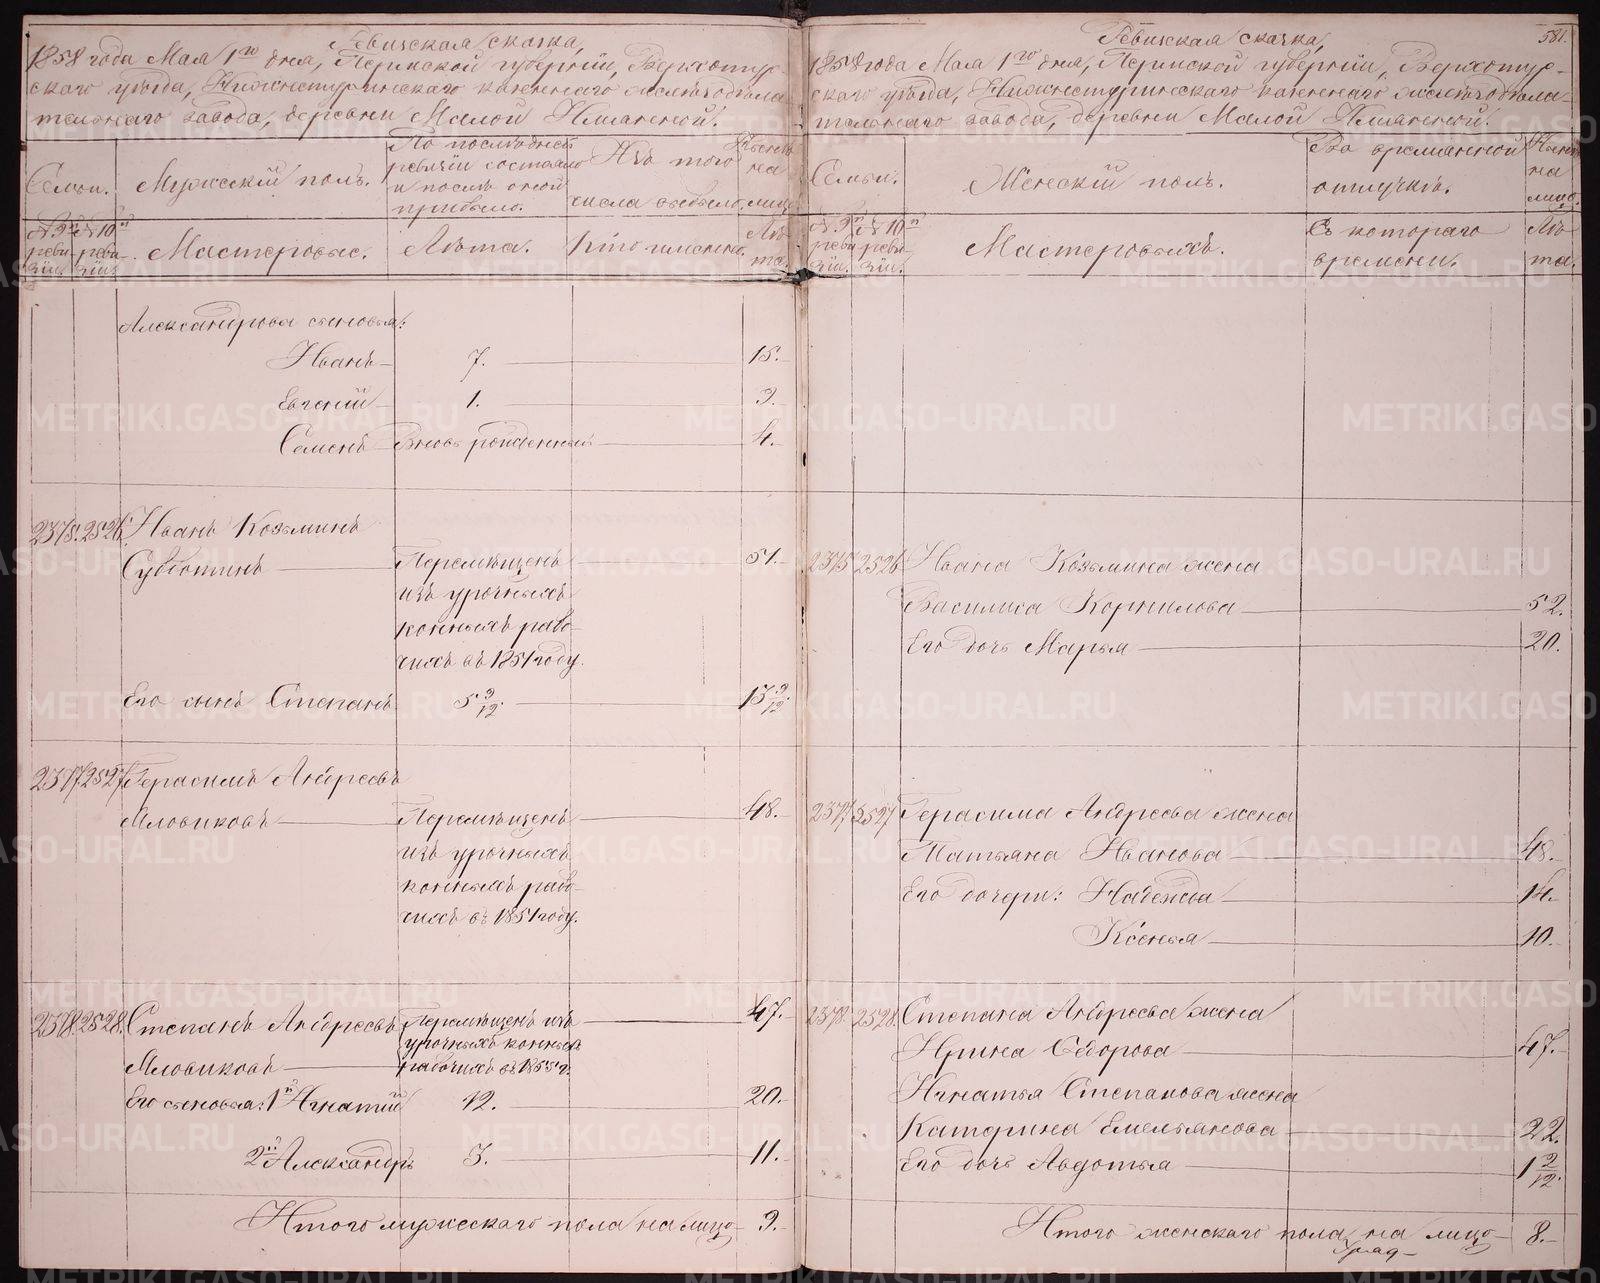 Ревизская сказка,
1858 года Мая 1го дня, Пермской губернии, Верхотур-
скаго уѣзда, Нижнетуринскаго казеннаго желѣзодѣла
тельнаго завода, деревни Малой Именной:
Семьи.
Мужескій полъ.
По послѣдней
ревизіи состояло
и послѣ оной
прибыло.
Изъ того
числа выбыло.
Нынѣ
на
лицо
№ 9й
реви
зіи.
№ 10й
реви
зіи.
Мастеровые.
Лѣта.
Кто именно.
Лѣ
та.
Александровы сыновья:
Иванъ 7. 15.
Евгеній 1. 9.
Семенъ Вновь рожденный 4.
2375. 2526. Иванъ Козьминъ
Субботинъ Перемѣщенъ 51.
изъ урочныхъ
конныхъ рабо-
чихъ въ 1851 году.
Его сынъ Степанъ 5 9/12. 13 9/12.
2377. 2527. Герасимъ Андреевъ
Мловиковъ Перемѣщенъ 48.
изъ урочныхъ
конныхъ рабо-
чихъ въ 1851 году.
2378. 2528. Степанъ Андреевъ Перемѣщенъ изъ 47.
урочныхъ конныхъ
Мловиковъ рабочихъ въ 1855 г.
Его сыновья: 1й Игнатій 12. 20.
2й Александръ 3. 11.
Итого мужескаго пола на лицо 9.
581.
Ревизская сказка,
1858 года Мая 1го дня, Пермской губерніи, Верхотур-
скаго уѣзда, Нижнетуринскаго казеннаго желѣзодѣла-
тельнаго завода, деревни Малой Именной:
Семьи.
Женскій полъ.
Во временной
отлучкѣ.
Нынѣ
на
лицо.
№ 9й
реви
зіи.
№ 10й
реви-
зіи.
Мастеровыхъ.
Съ котораго
времени.
Лѣ
та.
2375 2526 Ивана Козьмина жена
Василиса Корнилова 52.
Его дочь Марья 20.
2377 2527 Герасима Андреева жена
Матьяна Иванова 48.
Его дочери: Надежда 14.
Ксенья 10.
2378 2528. Степана Андреева жена
Ирина Федорова 47.
Игнатья Степанова жена
Катерина Емельянова 22.
Его дочь Авдотья 1 2/12.
Итого женскаго пола на лицо 8.
METRIKI.GASO-URAL.RU